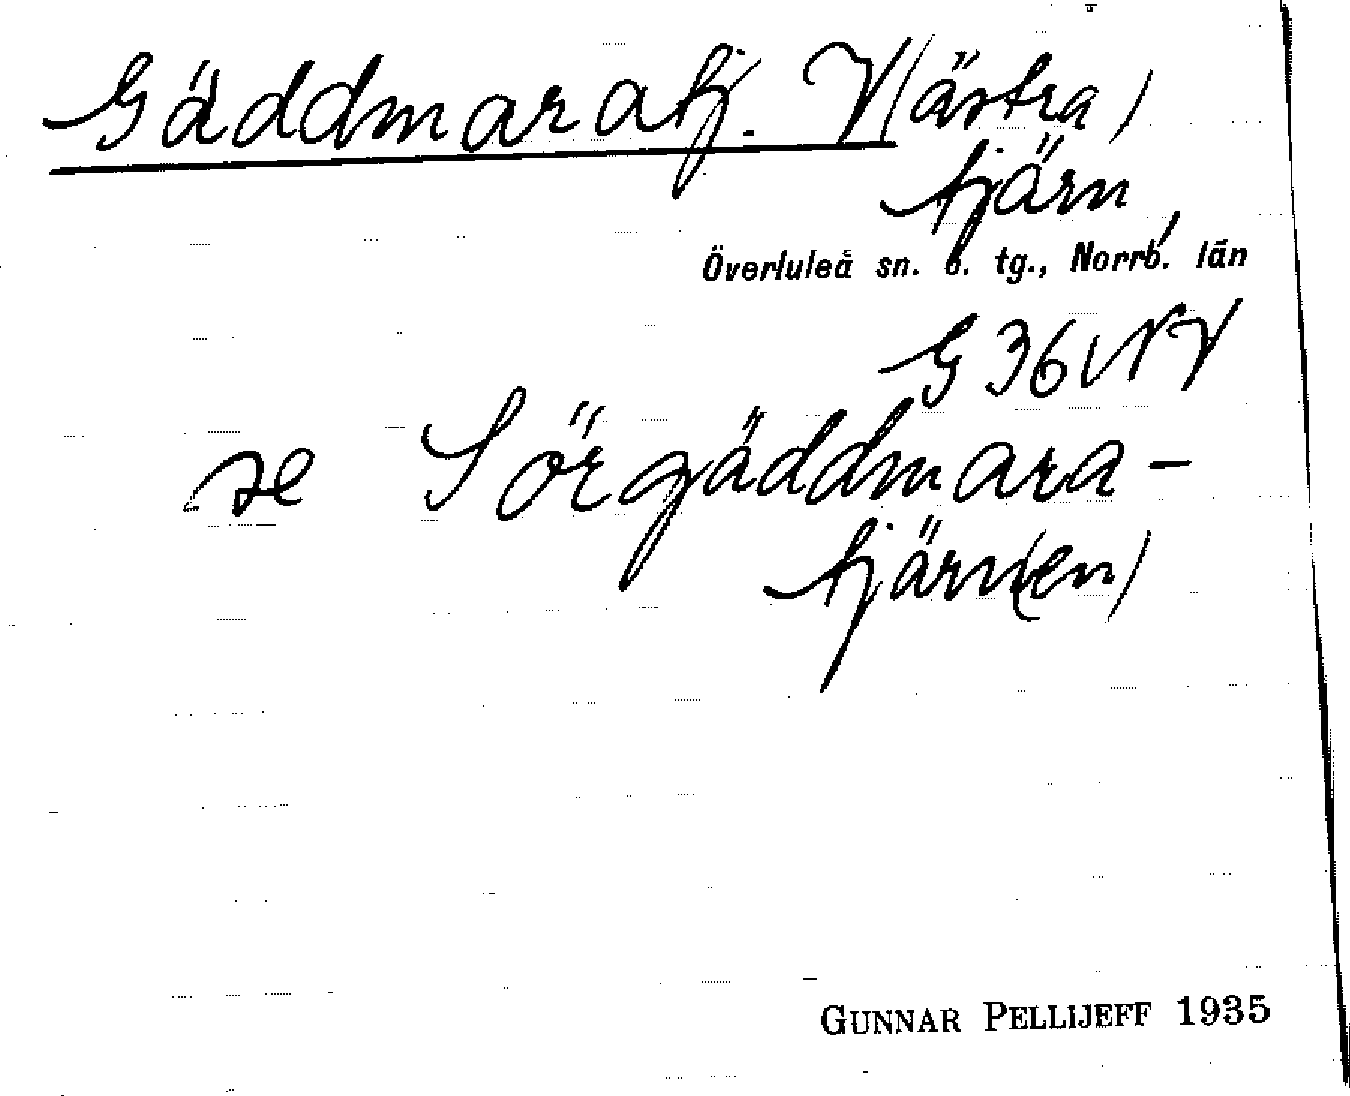 Gäddmaratj. V(ästra)
tjärn,
Överluleå sn. o. tg., Norrb. län
G 36 NV
se Sörgäddmara-
tjärn(en)
GUNNAR PELLIJEFF 1935